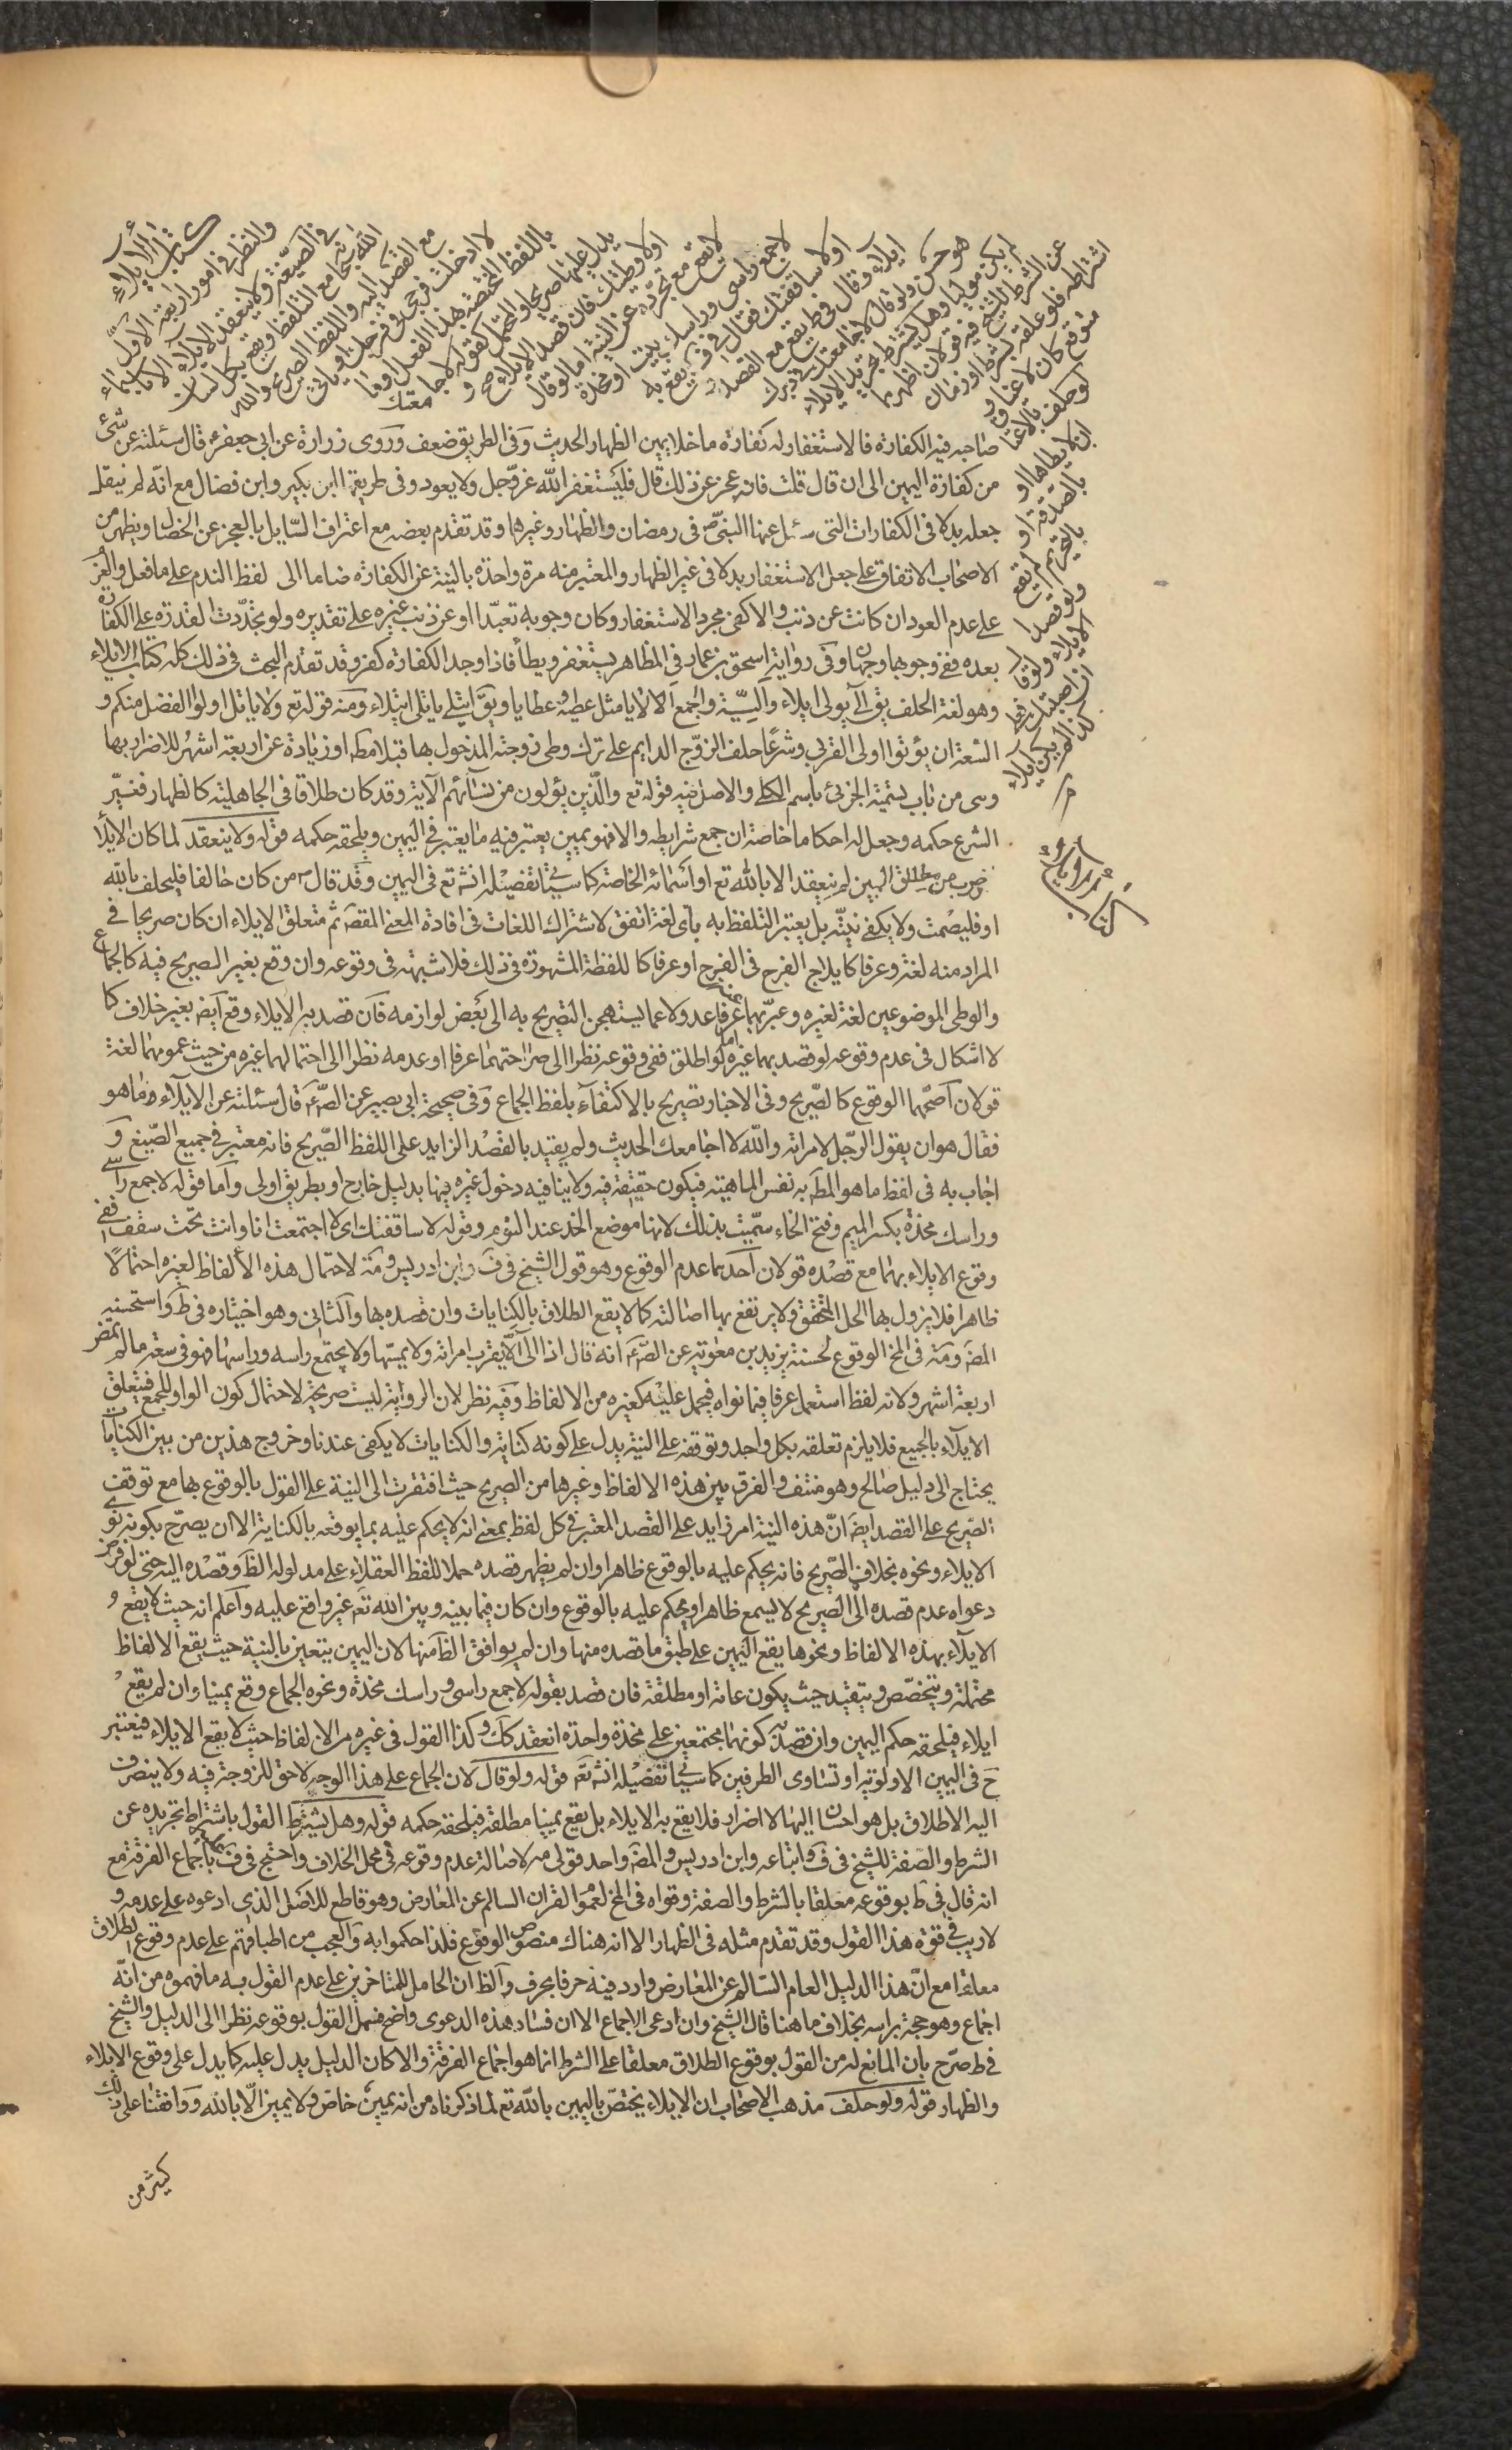 كتاب الايلاء
والنظر في امور اربعة الاول
في الصيغة ولا ينعقد الايلاء الا باسماء
الله سبحانه مع التلفظ ويقع بكل لسان
مع القصد اليه واللفظ الصريح والله
لا ادخلت فرجي في فرجك او ياتي
باللفظ المختصة بهذا الفعل او ما
يدل عليها صريحا والمحتمل كقوله لا جامعتك
او لا وطئتك فان قصد الايلاء صح و
لا يقع مع تجرده عن النية اما لو قال
لا جمع راسي وراسك بيت او مخدة
او لا ساقفتك فقال في ف يقع به
ايلاء وقال في ط يقع مع القصد و
هو حسن ولو قال لا جامعتك في دبرك
لم يكن موليا وهل يشترط تجريد الايلاء
عن الشرط للشيخ فيه قولان اظهرهما
اشتراطه فلو علقه بشرط او زمان
متوقع كان لاغيا و
لو حلف بالعتاق
ان لا يطاها او
بالصدقة او
بالتحريم لم يقع
ولو قصد
الايلاء ولو قال
ان اصبتك فعلي
كذا لم يكن ايلاء
كتاب الايلاء
صاحبه فيه الكفارة فالاستغفار له كفارة ما خلا يمين الظهار الحديث وفي الطريق ضعف وروى زرارة عن ابي جعفر ع قال سئلته عن شئ
من كفارة اليمين الى ان قال قلت فانه عجز عن ذلك قال فليستغفر الله عز وجل ولا يعود وفي طريقها ابن بكير وابن فضال مع انه لم ينقل
جعله بدلا في الكفارات التي سئل عنها النبي ص في رمضان والظهار وغيرها وقد تقدم بعضه مع اعتراف السايل بالعجز عن الخصال ويظهر من
الاصحاب الاتفاق على جعل الاستغفار بدلا في غير الظهار والمعتبر منه مرة واحدة بالنية عن الكفارة ضاما الى لفظ الندم على ما فعل والعزم
على عدم العود ان كانت عن ذنب والا كفى مجرد الاستغفار وكان وجوبه تعبدا او عن ذنب غيره على تقديره ولو تجددت القدرة على الكفارة
بعده ففي وجوبها وجهان وفي رواية اسحق بن عمار في المظاهر يستغفر ويطأ فاذا وجد الكفارة كفر وقد تقدم البحث في ذلك كله كتاب الايلاء
وهو لغة الحلف يق آلى يولي ايلاء والية والجمع الالايا مثل عطية وعطايا ويق ايتلى ياتلي ايتلاء ومنه قوله تع ولا ياتل اولوا الفضل منكم و
السعة ان يؤتوا اولى القربى وشرعا حلف الزوج الدايم على ترك وطي زوجته المدخول بها قبلا مط او زيادة عن اربعة اشهر للاضرار بها
وهى من باب تسمية الجزئي باسم الكلي والاصل فيه قوله تع والذين يؤلون من نسائهم الآية وقد كان طلاقا في الجاهلية كالظهار فغير
الشرع حكمه وجعل له احكاما خاصة ان جمع شرايطه والا فهو يمين يعتبر فيه ما يعتبر في اليمين ويلحقه حكمه قوله ولا ينعقد لما كان الايلاء
ضرب من مطلق اليمين لم ينعقد الا بالله تع او اسمائه الخاصة كما سيأتي تفصيله انش تع في اليمين وقد قال ص من كان حالفا فليحلف بالله
او فليصمت ولا يكفي نيته بل يعتبر التلفظ به باى لغة اتفق لاشتراك اللغات في افادة المعنى المقص ثم متعلق الايلاء ان كان صريحا في
المراد منه لغة وعرفا كايلاج الفرج في الفرج او عرفا كاللفظة المشهورة في ذلك فلا شبهة في وقوعه وان وقع بغير الصريح فيه كالجماع
والوطي الموضوعين لغة لغيره وعبر بهما عنه عرفا عدولا عما يستهجن التصريح به الى بعض لوازمه فان قصد به الايلاء وقع ايض بغير خلاف كما
لا اشكال في عدم وقوعه لو قصد بهما غيره اما لو اطلق ففي وقوعه نظرا الى صراحتهما عرفا او عدمه نظرا الى احتمالهما غيره من حيث عمومهما لغة
قولان اصحهما الوقوع كالصريح وفي الاخبار تصريح بالاكتفاء بلفظ الجماع وفي صحيحة ابي بصير عن الص ع قال سئلته عن الايلاء وما هو
فقال هو ان يقول الرجل لامراته والله لا اجامعك الحديث ولم يقيد بالقصد الزايد على اللفظ الصريح فانه معتبر في جميع الصيغ و
اجاب به في لفظ ما هو المط به نفس الماهية فيكون حقيقة فيه ولا ينافيه دخول غيره فيها بدليل خارج او بطريق اولى واما قوله لا جمع راسي
وراسك مخدة بكسر الميم وفتح الخاء سميت بذلك لانها موضع الخد عند النوم وقوله لا ساقفتك اى لا اجتمعت انا وانت تحت سقف ففي
وقوع الايلاء بهما مع قصده قولان احدهما عدم الوقوع وهو قول الشيخ في ف وابن ادريس ومة لاحتمال هذه الألفاظ لغيره احتمالا
ظاهرا فلا يزول بها الحل المتحقق ولا يرتفع بها اصالته كما لا يقع الطلاق بالكنايات وان قصده بها والثاني وهو اختياره في ط واستحسنه
المص ومة في المخ الوقوع لحسنة يزيد بن معوية عن الص ع انه قال اذا الى الا يقرب امراته ولا يمسها ولا يجتمع راسه وراسها فهو في سعة ما لم تمض
اربعة اشهر ولانه لفظ استعمل عرفا فيما نواه فيحمل عليه كغيره من الالفاظ وفيه نظر لان الرواية ليست صريحة لاحتمال كون الواو للجمع فيتعلق
الايلاء بالجميع فلا يلزم تعلقه بكل واحد وتوقفه على النية يدل على كونه كناية والكنايات لا يكفي عندنا وخروج هذين من بين الكنايات
يحتاج الى دليل صالح وهو منتف والفرق بين هذه الالفاظ وغيرها من الصريح حيث افتقرت الى النية على القول بالوقوع بها مع توقف
الصريح على القصد ايض ان هذه النية امر زايد على القصد المعتبر في كل لفظ بمعنى انه لا يحكم عليه بما يوقعه بالكناية الا ان يصرح بكونه نوى
الايلاء ونحوه بخلاف الصريح فانه يحكم عليه بالوقوع ظاهرا وان لم يظهر قصده حملا للفظ العقلاء على مدلوله الظ وقصده اليه حتى لو فرض
دعواه عدم قصده الى الصريح لا يسمع ظاهرا ويحكم عليه بالوقوع وان كان فيما بينه وبين الله تع غير واقع عليه واعلم انه حيث لا يقع و
الايلاء بهذه الالفاظ ونحوها يقع اليمين على طبق ما قصده منها وان لم يوافق الظ منها لان اليمين يتعين بالنية حيث يقع الالفاظ
محتملة ويتخصص ويتقيد حيث يكون عامة او مطلقة فان قصد بقوله لا جمع راسي وراسك مخدة ونحوه الجماع وقع يمينا وان لم يقع
ايلاء فيلحقه حكم اليمين وان قصد به كونهما مجتمعين على مخدة واحدة انعقد كك وكذا القول في غيره من الالفاظ حيث لا يقع الايلاء فيعتبر
ح في اليمين الاولوية او تساوى الطرفين كما سيأتي تفصيله انش تع قوله ولو قال لان الجماع على هذا الوجه لا حق للزوجة فيه ولا ينصرف
اليه الاطلاق بل هو احسان اليها لا اضرار فلا يقع به الايلاء بل يقع يمينا مطلقة فيلحقه حكمه قوله وهل يشترط القول باشتراط تجريده عن
الشرط والصفة للشيخ في ف واتباعه وابن ادريس والمص واحد قولي مه لاصالة عدم وقوعه في محل الخلاف واحتج في ف عليه باجماع الفرقة مع
انه قال في ط بوقوعه معلقا بالشرط والصفة وقواه في المخ لعموم القران السالم عن المعارض وهو قاطع للاصل الذي ادعوه على عدمه و
لا ريب في قوة هذا القول وقد تقدم مثله في الظهار الا انه هناك منصوص الوقوع فلذا حكموا به والعجب من اطباقهم على عدم وقوع الطلاق
معلقا مع ان هذا الدليل العام السالم عن المعارض وارد فيه حرفا بحرف والظ ان الحامل للمتاخرين على عدم القول به ما فهموه من انه
اجماع وهو حجة براسه بخلاف ما هنا قال الشيخ وان ادعى الاجماع الا ان فساد هذه الدعوى واضح فسهل القول بوقوعه نظرا الى الدليل والشيخ
في ط صرح بان المانع له من القول بوقوع الطلاق معلقا على الشرط انما هو اجماع الفرقة والا كان الدليل يدل عليه كما يدل على وقوع الايلاء
والظهار قوله ولو حلف مذهب الاصحاب ان الايلاء يختص باليمين بالله تع لما ذكرناه من انه يمين خاص ولا يمين الا بالله ووافقنا على ذلك
كثير من